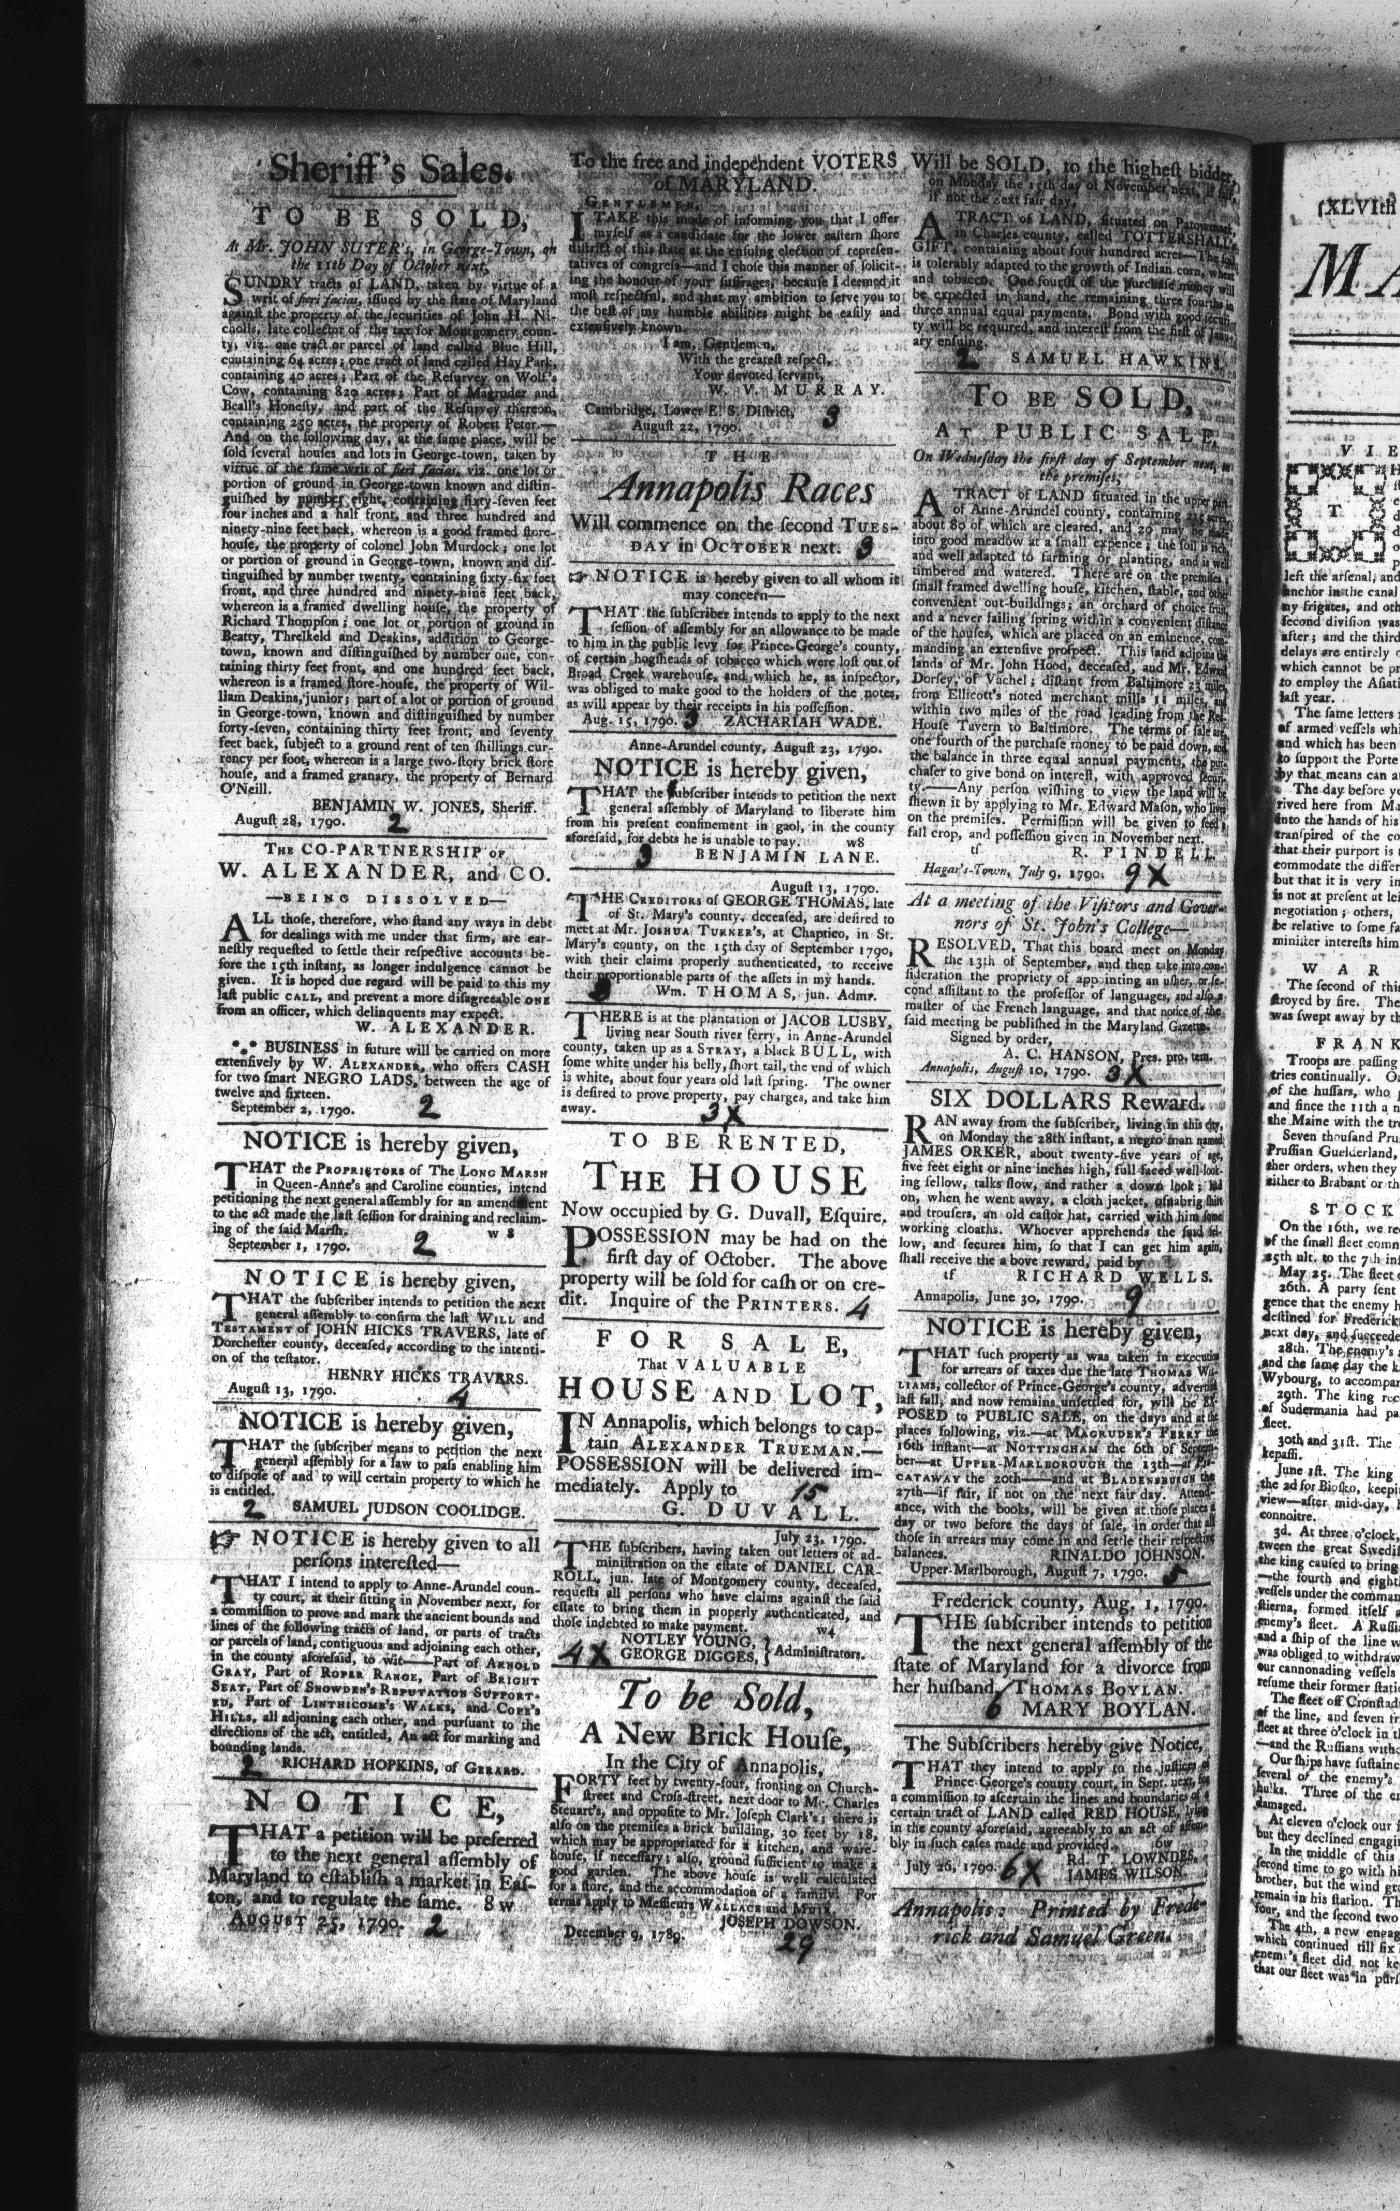 Sheriff's Sales.
TO BE SOLD,
At Mr. JOHN SUTER's, in George-Town, on
the 11th Day of October next,
SUNDRY tracts of LAND, taken by virtue of a
writ of fieri facias, issued by the state of Maryland
against the property of the securities of John H. Ni-
cholls, late collector of the tax for Montgomery coun-
ty, viz. one tract or parcel of land called Blue Hill,
containing 64 acres; one tract of land called Hay Park,
containing 40 acres; Part of the Resurvey on Wolf's
Cow, containing 829 acres; Part of Magruder and
Beall's Honesty, and part of the Resurvey thereon,
containing 250 acres, the property of Robert Peter.—
And on the following day, at the same place, will be
sold several houses and lots in George-town, taken by
virtue of the same writ of fieri facias, viz. one lot or
portion of ground in George-town known and distin-
guished by number eight, containing sixty-seven feet
four inches and a half front, and three hundred and
ninety-nine feet back, whereon is a good framed store-
house, the property of colonel John Murdock; one lot
or portion of ground in George-town, known and dis-
tinguished by number twenty, containing sixty-six feet
front, and three hundred and ninety-nine feet back,
whereon is a framed dwelling house, the property of
Richard Thompson; one lot or portion of ground in
Beatty, Threlkeld and Deakins, addition to George-
town, known and distinguished by number one, con-
taining thirty feet front, and one hundred feet back,
whereon is a framed store-house, the property of Wil-
liam Deakins, junior; part of a lot or portion of ground
in George-town, known and distinguished by number
forty-seven, containing thirty feet front, and seventy
feet back, subject to a ground rent of ten shillings cur-
rency per foot, whereon is a large two-story brick store
house, and a framed granary, the property of Bernard
O'Neill.
BENJAMIN W. JONES, Sheriff.
August 28, 1790. 2
THE CO-PARTNERSHIP OF
W. ALEXANDER, and CO.
—BEING DISSOLVED—
ALL those, therefore, who stand any ways in debt
for dealings with me under that firm, are ear-
nestly requested to settle their respective accounts be-
fore the 15th instant, as longer indulgence cannot be
given. It is hoped due regard will be paid to this my
last public CALL, and prevent a more disagreeable ONE
from an officer, which delinquents may expect.
W. ALEXANDER.
*** BUSINESS in future will be carried on more
extensively by W. ALEXANDER, who offers CASH
for two smart NEGRO LADS, between the age of
twelve and sixteen.
September 2, 1790. 2
NOTICE is hereby given,
THAT the PROPRIETORS of The LONG MARSH
in Queen-Anne's and Caroline counties, intend
petitioning the next general assembly for an amendment
to the act made the last session for draining and reclaim-
ing of the said Marsh. w 8
September 1, 1790. 2
NOTICE is hereby given,
THAT the subscriber intends to petition the next
general assembly to confirm the last WILL and
TESTAMENT of JOHN HICKS TRAVERS, late of
Dorchester county, deceased, according to the intenti-
on of the testator.
HENRY HICKS TRAVERS.
August 13, 1790. 4
NOTICE is hereby given,
THAT the subscriber means to petition the next
general assembly for a law to pass enabling him
to dispose of and to will certain property to which he
is entitled.
2 SAMUEL JUDSON COOLIDGE.
☞ NOTICE is hereby given to all
persons interested—
THAT I intend to apply to Anne-Arundel coun-
ty court, at their sitting in November next, for
a commission to prove and mark the ancient bounds and
lines of the following tracts of land, or parts of tracts
or parcels of land, contiguous and adjoining each other,
in the county aforesaid, to wit——Part of ARNOLD
GRAY, Part of ROPER RANGE, Part of BRIGHT
SEAT, Part of SNOWDEN'S REPUTATION SUPPORT-
ED, Part of LINTHICOME'S WALKS, and COPE'S
HILLS, all adjoining each other, and pursuant to the
directions of the act, entitled, An act for marking and
bounding lands.
2 RICHARD HOPKINS, of GERARD.
NOTICE,
THAT a petition will be preferred
to the next general assembly of
Maryland to establish a market in Eas-
ton, and to regulate the same. 8 w
AUGUST 25, 1790. 2
To the free and independent VOTERS
of MARYLAND.
GENTLEMEN,
I TAKE this mode of informing you that I offer
myself as a candidate for the lower eastern shore
district of this state at the ensuing election of represen-
tatives of congress—and I chose this manner of solicit-
ing the honour of your suffrages, because I deemed it
most respectful, and that my ambition to serve you to
the best of my humble abilities might be easily and
extensively known.
I am, Gentlemen,
With the greatest respect,
Your devoted servant,
W. V. MURRAY.
Cambridge, Lower E. S. District,
August 22, 1790. 3
THE
Annapolis Races
Will commence on the second TUES-
DAY in OCTOBER next. 3
☞ NOTICE is hereby given to all whom it
may concern—
THAT the subscriber intends to apply to the next
session of assembly for an allowance to be made
to him in the public levy for Prince-George's county,
of certain hogsheads of tobacco which were lost out of
Broad Creek warehouse, and which he, as inspector,
was obliged to make good to the holders of the notes,
as will appear by their receipts in his possession.
Aug. 15, 1790. 3 ZACHARIAH WADE.
Anne-Arundel county, August 23, 1790.
NOTICE is hereby given,
THAT the subscriber intends to petition the next
general assembly of Maryland to liberate him
from his present confinement in gaol, in the county
aforesaid, for debts he is unable to pay. w8
3 BENJAMIN LANE.
August 13, 1790.
THE CREDITORS of GEORGE THOMAS, late
of St. Mary's county, deceased, are desired to
meet at Mr. JOSHUA TURKER'S, at Chaptico, in St.
Mary's county, on the 15th day of September 1790,
with their claims properly authenticated, to receive
their proportionable parts of the assets in my hands.
3 Wm. THOMAS, jun. Admr.
THERE is at the plantation of JACOB LUSBY,
living near South river ferry, in Anne-Arundel
county, taken up as a STRAY, a black BULL, with
some white under his belly, short tail, the end of which
is white, about four years old last spring. The owner
is desired to prove property, pay charges, and take him
away. 3X
TO BE RENTED,
THE HOUSE
Now occupied by G. Duvall, Esquire.
POSSESSION may be had on the
first day of October. The above
property will be sold for cash or on cre-
dit. Inquire of the PRINTERS. 4
FOR SALE,
That VALUABLE
HOUSE AND LOT,
IN Annapolis, which belongs to cap-
tain ALEXANDER TRUEMAN.—
POSSESSION will be delivered im-
mediately. Apply to 15
G. DUVALL.
July 23, 1790.
THE subscribers, having taken out letters of ad-
ministration on the estate of DANIEL CAR-
ROLL, jun. late of Montgomery county, deceased,
requests all persons who have claims against the said
estate to bring them in properly authenticated, and
those indebted to make payment. w4
4X NOTLEY YOUNG, }
GEORGE DIGGES, } Administrators.
To be Sold,
A New Brick House,
In the City of Annapolis,
FORTY feet by twenty-four, fronting on Church-
street and Cross-street, next door to Mr. Charles
Steuart's, and opposite to Mr. Joseph Clark's; there is
also on the premises a brick building, 30 feet by 18,
which may be appropriated for a kitchen, and ware-
house, if necessary; also, ground sufficient to make a
good garden. The above house is well calculated
for a store, and the accommodation of a family. For
terms apply to Messieurs WALLACE and MUIR.
JOSEPH DOWSON.
December 9, 1789. 29
Will be SOLD, to the highest bidder,
on Monday the 15th day of November next, if fair,
if not the next fair day,
A TRACT of LAND, situated on Patowmack,
in Charles county, called TOTTERSHALL's
GIFT, containing about four hundred acres—The soil
is tolerably adapted to the growth of Indian corn, wheat
and tobacco. One fourth of the purchase money will
be expected in hand, the remaining three fourths in
three annual equal payments. Bond with good securi-
ty will be required, and interest from the first of Janu-
ary ensuing.
2 SAMUEL HAWKINS.
To BE SOLD,
AT PUBLIC SALE,
On Wednesday the first day of September next, on
the premises,
A TRACT of LAND situated in the upper part
of Anne-Arundel county, containing acres
about 80 of which are cleared, and 20 may be made
into good meadow at a small expence; the soil is rich,
and well adapted to farming or planting, and is well
timbered and watered. There are on the premises a
small framed dwelling house, kitchen, stable, and other
convenient out-buildings; an orchard of choice fruit,
and a never failing spring within a convenient distance
of the houses, which are placed on an eminence, com-
manding an extensive prospect. This land adjoins the
lands of Mr. John Hood, deceased, and Mr. Edward
Dorsey, of Vachel; distant from Baltimore 23 miles,
from Ellicott's noted merchant mills 11 miles, and
within two miles of the road leading from the Red-
House Tavern to Baltimore. The terms of sale are,
one fourth of the purchase money to be paid down, and
the balance in three equal annual payments, the pur-
chaser to give bond on interest, with approved securi-
ty.——Any person wishing to view the land will be
shewn it by applying to Mr. Edward Mason, who lives
on the premises. Permission will be given to seed a
fall crop, and possession given in November next.
tf R. PINDELL.
Hagar's-Town, July 9, 1790. 9X
At a meeting of the Visitors and Gover-
nors of St. John's College—
RESOLVED, That this board meet on Monday
the 13th of September, and then take into con-
sideration the propriety of appointing an usher, or se-
cond assistant to the professor of languages, and also a
master of the French language, and that notice of the
said meeting be published in the Maryland Gazette.
Signed by order,
A. C. HANSON, Pres. pro. tem.
Annapolis, August 10, 1790. 3X
SIX DOLLARS Reward.
RAN away from the subscriber, living in this city,
on Monday the 28th instant, a negro man named
JAMES ORKER, about twenty-five years of age,
five feet eight or nine inches high, full faced well look-
ing fellow, talks slow, and rather a down look; had
on, when he went away, a cloth jacket, osnabrig shirt
and trousers, an old castor hat, carried with him some
working cloaths. Whoever apprehends the said fel-
low, and secures him, so that I can get him again,
shall receive the above reward, paid by
tf RICHARD WELLS.
Annapolis, June 30, 1790. 9
NOTICE is hereby given,
THAT such property as was taken in execution
for arrears of taxes due the late THOMAS WIL-
LIAMS, collector of Prince-George's county, advertised
last fall, and now remains unsettled for, will be EX-
POSED to PUBLIC SALE, on the days and at the
places following, viz.—at MAGRUDER'S FERRY the
16th instant—at NOTTINGHAM the 6th of Septem-
ber—at UPPER-MARLBOROUGH the 13th—at PIS-
CATAWAY the 20th——and at BLADENSBURGH the
27th—if fair, if not on the next fair day. Attend-
ance, with the books, will be given at those places a
day or two before the days of sale, in order that all
those in arrears may come in and settle their respective
balances. RINALDO JOHNSON.
Upper-Marlborough, August 7, 1790. 5
Frederick county, Aug. 1, 1790.
THE subscriber intends to petition
the next general assembly of the
state of Maryland for a divorce from
her husband, THOMAS BOYLAN.
6 MARY BOYLAN.
The Subscribers hereby give Notice,
THAT they intend to apply to the justices of
Prince-George's county court, in Sept. next, for
a commission to ascertain the lines and boundaries of a
certain tract of LAND called RED HOUSE, lying
in the county aforesaid, agreeably to an act of assem-
bly in such cases made and provided. 6w
Rd. T. LOWNDES,
July 26, 1790. 6X JAMES WILSON.
Annapolis: Printed by Frede-
rick and Samuel Green.
(XLVIth
MA
VIE
T
left the arsenal, and
anchor in the canal
ny frigates, and oth
second division was
after; and the third
delays are entirely o
which cannot be pr
to employ the Asiati
last year.
The same letters
of armed vessels whi
and which has been
to support the Porte
by that means can a
The day before ye
rived here from Ma
into the hands of his
transpired of the co
that their purport is
commodate the differ
but that it is very in
is not at present at lei
negotiation; others,
be relative to some fa
minister interests him
WAR
The second of this
stroyed by fire. The
was swept away by th
FRANK
Troops are passing
tries continually. O
of the hussars, who
and since the 11th a
the Maine with the tr
Seven thousand Prus
Prussian Guelderland,
ther orders, when they
either to Brabant or th
STOCK
On the 16th, we re
of the small fleet comm
25th ult. to the 7th in
May 25. The fleet
26th. A party sent
gence that the enemy h
destined for Frederick
next day, and succeede
28th. The enemy's
and the same day the k
Wybourg, to accompan
29th. The king rec
of Sudermania had pa
fleet.
30th and 31st. The
kepassi.
June 1st. The king
the 2d for Biosko, keepi
view—after mid-day,
connoitre.
3d. At three o'clock,
tween the great Swedis
the king caused to bring
—the fourth and eighth
vessels under the comman
stierna, formed itself
enemy's fleet. A Russi
and a ship of the line w
was obliged to withdraw
our cannonading vessels
resume their former stati
The fleet off Cronstad
of the line, and seven fr
fleet at three o'clock in th
—and the Russians witho
Our ships have sustaine
several of the enemy's
hulks. Three of the en
damaged.
At eleven o'clock our f
but they declined engagi
In the middle of this
second time to go with hi
brother, but the wind gre
remain in his station. Th
four, and the second two
The 4th, a new engag
which continued till six
enemy's fleet did not ke
that our fleet was in purs